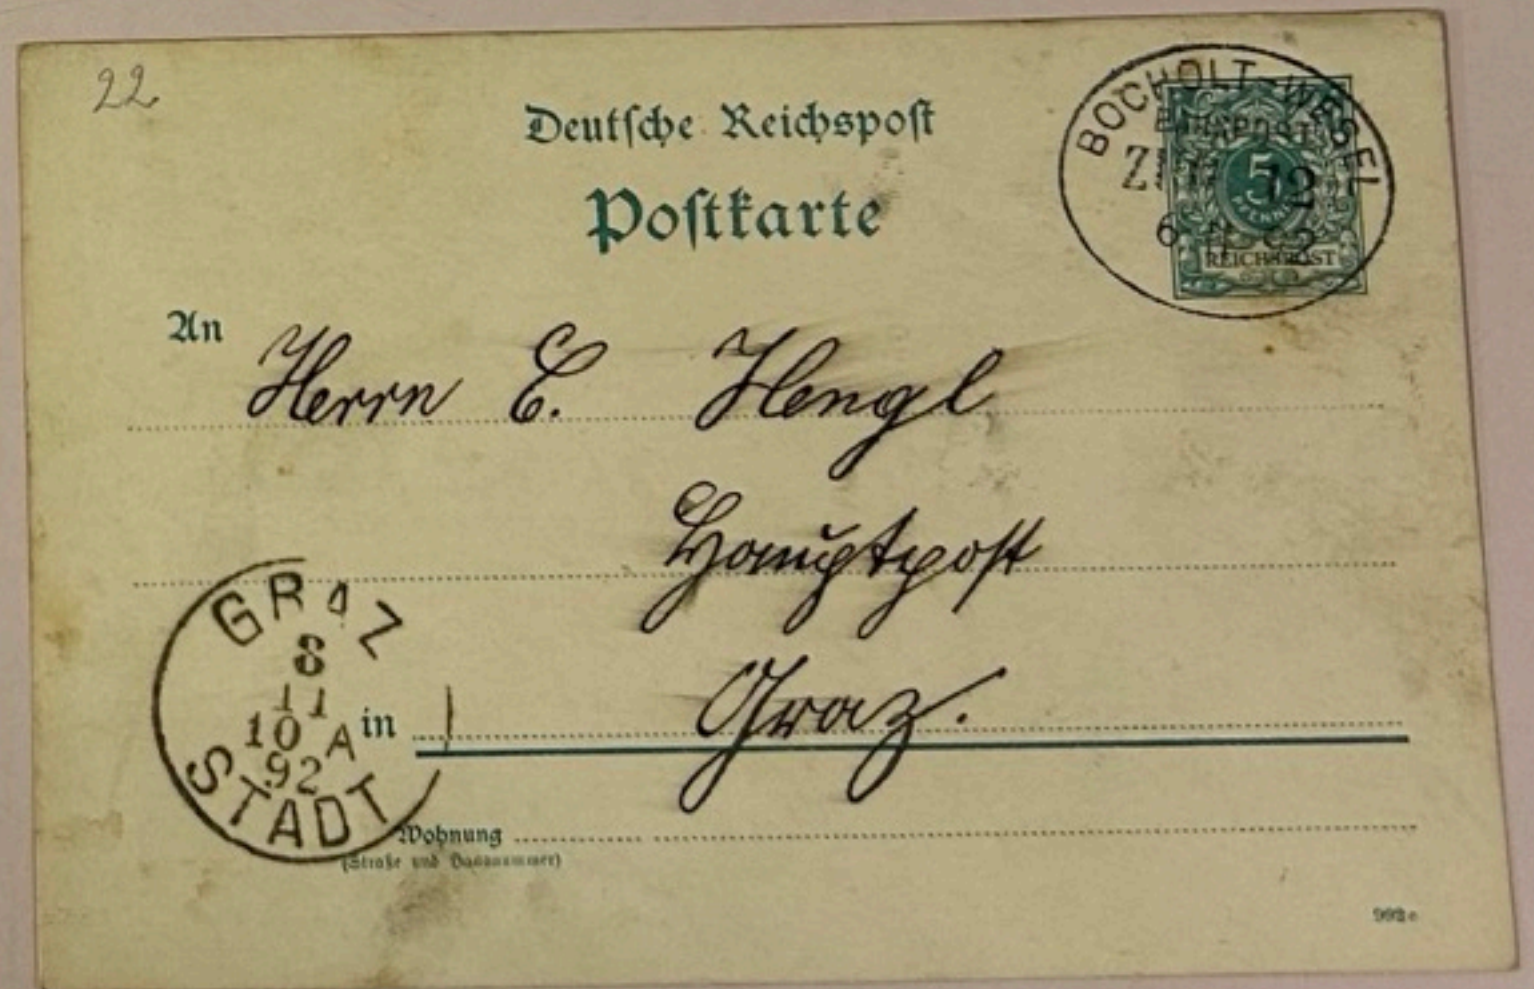 22
Deutsche Reichspost
Postkarte
BOCHOLT-WESEL
BAHNPOST
ZUG 12
6 11 92
5
PFENNIG
REICHSPOST
An Herrn E. Hengl
Hauptpost
in Graz.
GRAZ
8
11
10 A
92
STADT
Wohnung
(Straße und Hausnummer)